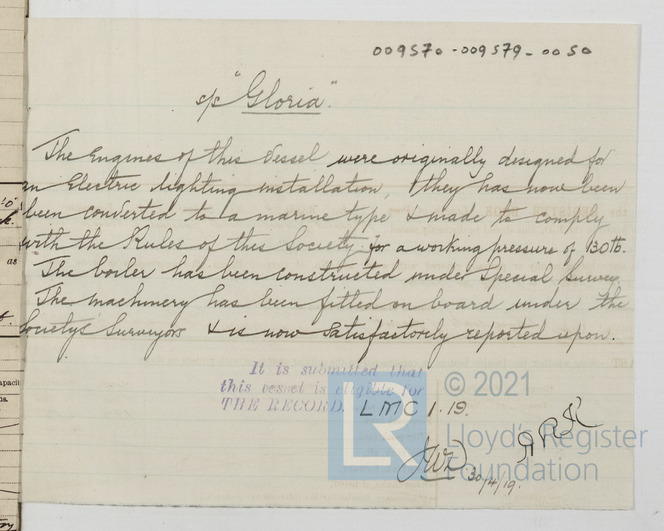 009570-009579-0050
s/s "Gloria".
The Engines of this Vessel were originally designed for
an Electric lighting installation, & they has now been
been converted to a marine type & made to comply
with the Rules of this Society for a working pressure of 130 lb.
The boiler has been constructed under Special Survey
The machinery has been fitted on board under the
Society's Surveyors & is now satisfactorily reported upon.
It is submitted that
this vessel is eligible for
THE RECORD. LMC 1.19.
30/4/19.
LR © 2021
Lloyd's Register
Foundation
as
apacit
ns.